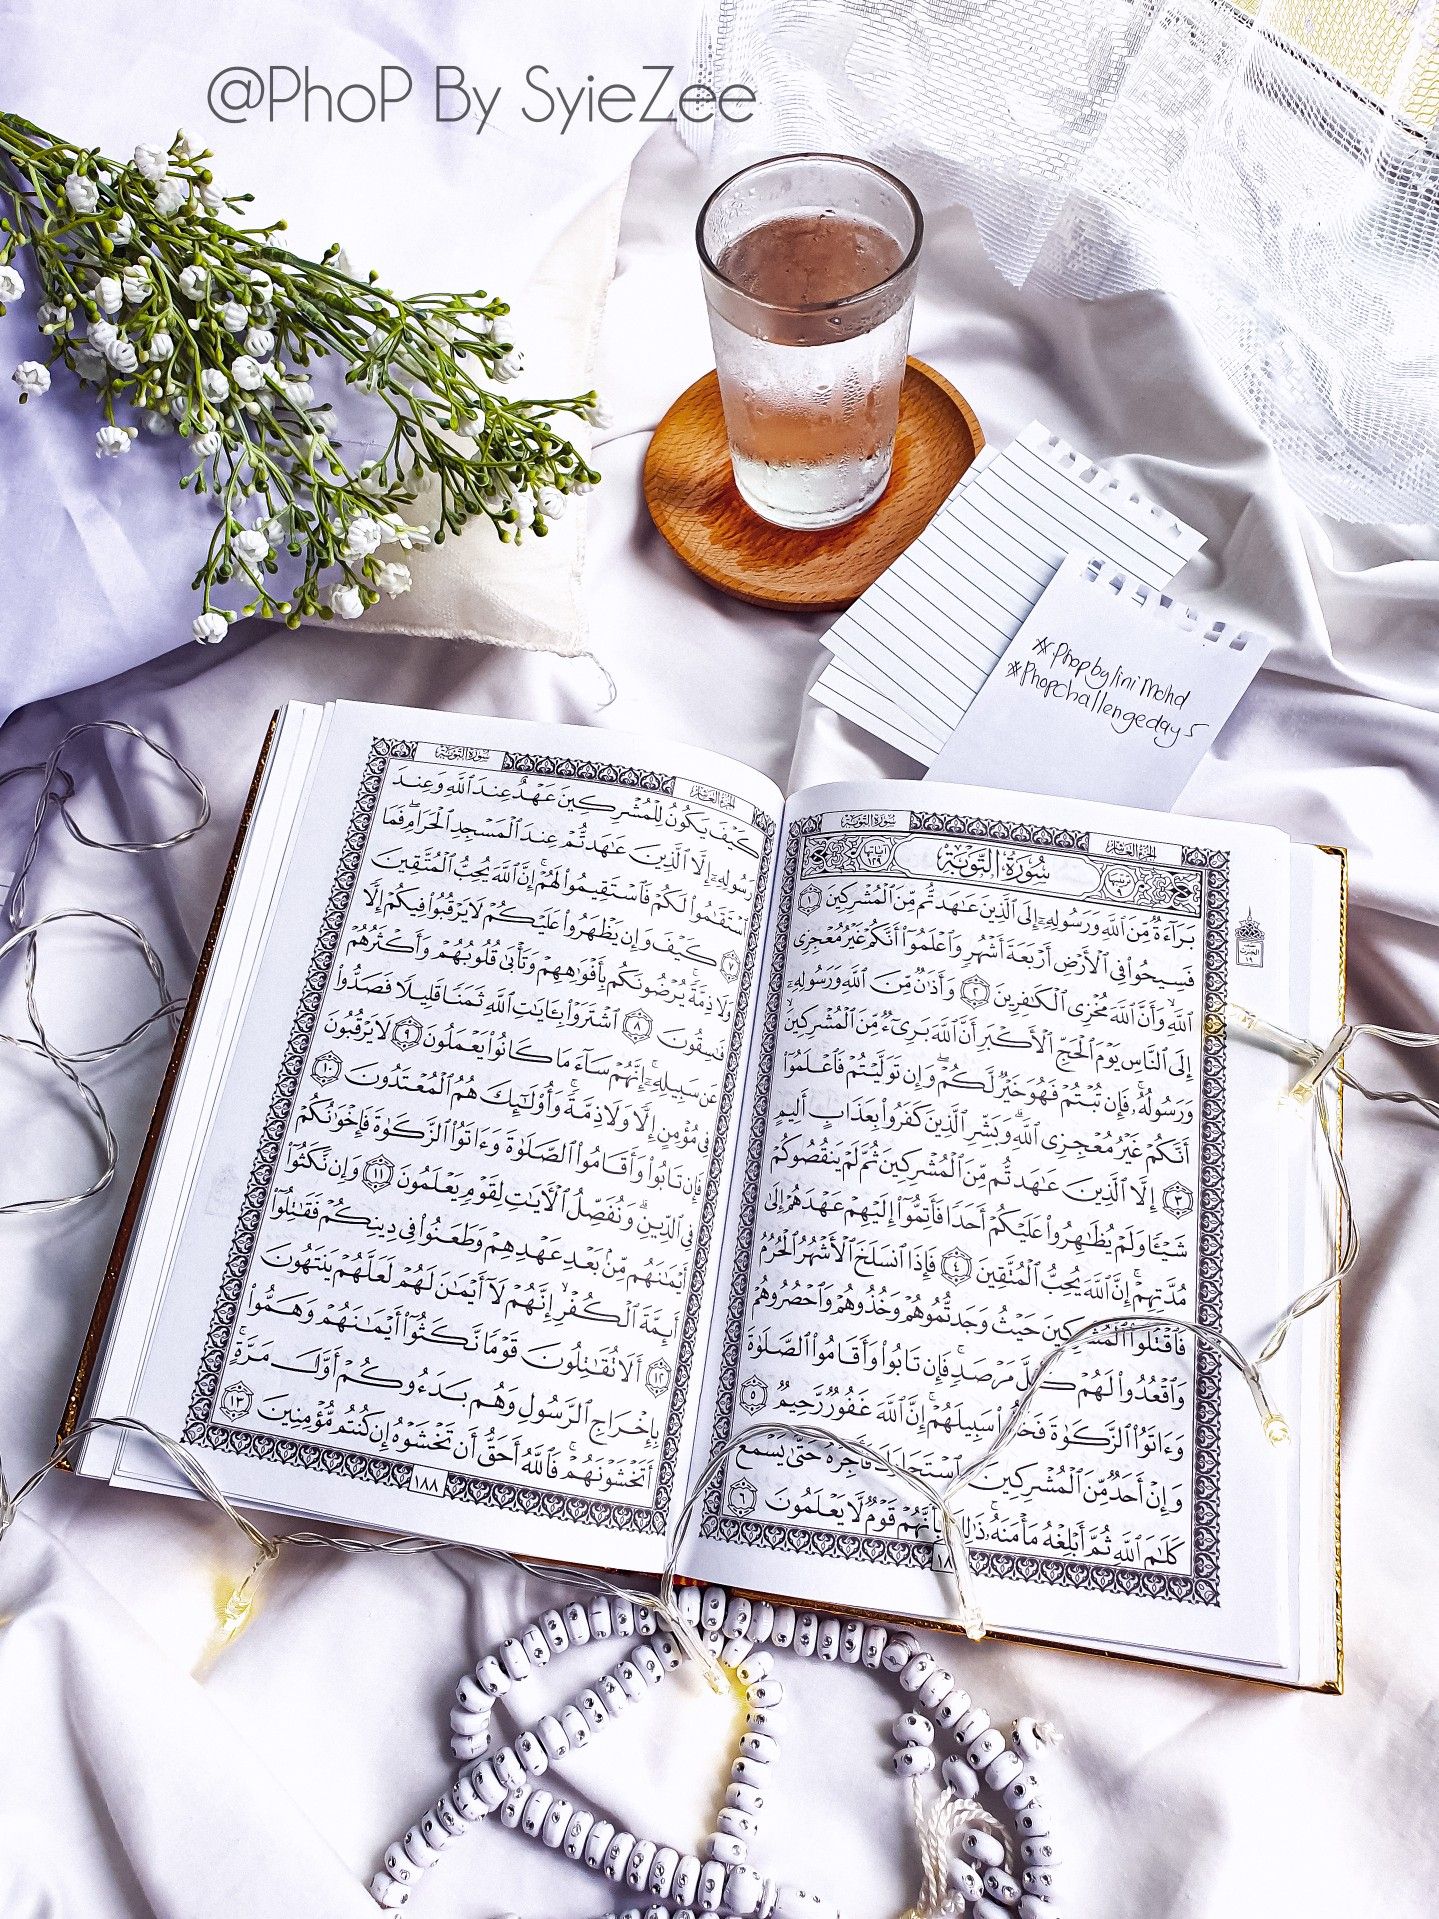 @PhoP By SyieZee
#PhopbyliniMohd
#Phopchallengeday5
سُورَةُ التَّوْبَةِ
الجُزْءُ العَاشِرُ
سُورَةُ التَّوْبَةِ
آياتها ١٢٩
بَرَآءَةٌ مِّنَ ٱللَّهِ وَرَسُولِهِۦٓ إِلَى ٱلَّذِينَ عَٰهَدتُّم مِّنَ ٱلْمُشْرِكِينَ ١
فَسِيحُوا۟ فِى ٱلْأَرْضِ أَرْبَعَةَ أَشْهُرٍ وَٱعْلَمُوٓا۟ أَنَّكُمْ غَيْرُ مُعْجِزِى
ٱللَّهِ وَأَنَّ ٱللَّهَ مُخْزِى ٱلْكَٰفِرِينَ ٢ وَأَذَٰنٌ مِّنَ ٱللَّهِ وَرَسُولِهِۦٓ
إِلَى ٱلنَّاسِ يَوْمَ ٱلْحَجِّ ٱلْأَكْبَرِ أَنَّ ٱللَّهَ بَرِىٓءٌ مِّنَ ٱلْمُشْرِكِينَ
وَرَسُولُهُۥ فَإِن تُبْتُمْ فَهُوَ خَيْرٌ لَّكُمْ وَإِن تَوَلَّيْتُمْ فَٱعْلَمُوٓا۟
أَنَّكُمْ غَيْرُ مُعْجِزِى ٱللَّهِ وَبَشِّرِ ٱلَّذِينَ كَفَرُوا۟ بِعَذَابٍ أَلِيمٍ
٣ إِلَّا ٱلَّذِينَ عَٰهَدتُّم مِّنَ ٱلْمُشْرِكِينَ ثُمَّ لَمْ يَنقُصُوكُمْ
شَيْـًٔا وَلَمْ يُظَٰهِرُوا۟ عَلَيْكُمْ أَحَدًا فَأَتِمُّوٓا۟ إِلَيْهِمْ عَهْدَهُمْ إِلَىٰ
مُدَّتِهِمْ إِنَّ ٱللَّهَ يُحِبُّ ٱلْمُتَّقِينَ ٤ فَإِذَا ٱنسَلَخَ ٱلْأَشْهُرُ ٱلْحُرُمُ
فَٱقْتُلُوا۟ ٱلْمُشْرِكِينَ حَيْثُ وَجَدتُّمُوهُمْ وَخُذُوهُمْ وَٱحْصُرُوهُمْ
وَٱقْعُدُوا۟ لَهُمْ كُلَّ مَرْصَدٍ فَإِن تَابُوا۟ وَأَقَامُوا۟ ٱلصَّلَوٰةَ
وَءَاتَوُا۟ ٱلزَّكَوٰةَ فَخَلُّوا۟ سَبِيلَهُمْ إِنَّ ٱللَّهَ غَفُورٌ رَّحِيمٌ ٥
وَإِنْ أَحَدٌ مِّنَ ٱلْمُشْرِكِينَ ٱسْتَجَارَكَ فَأَجِرْهُ حَتَّىٰ يَسْمَعَ
كَلَٰمَ ٱللَّهِ ثُمَّ أَبْلِغْهُ مَأْمَنَهُۥ ذَٰلِكَ بِأَنَّهُمْ قَوْمٌ لَّا يَعْلَمُونَ ٦
سُورَةُ التَّوْبَةِ
الجُزْءُ العَاشِرُ
كَيْفَ يَكُونُ لِلْمُشْرِكِينَ عَهْدٌ عِندَ ٱللَّهِ وَعِندَ
رَسُولِهِۦٓ إِلَّا ٱلَّذِينَ عَٰهَدتُّمْ عِندَ ٱلْمَسْجِدِ ٱلْحَرَامِ فَمَا
ٱسْتَقَٰمُوا۟ لَكُمْ فَٱسْتَقِيمُوا۟ لَهُمْ إِنَّ ٱللَّهَ يُحِبُّ ٱلْمُتَّقِينَ
٧ كَيْفَ وَإِن يَظْهَرُوا۟ عَلَيْكُمْ لَا يَرْقُبُوا۟ فِيكُمْ إِلًّا
وَلَا ذِمَّةً يُرْضُونَكُم بِأَفْوَٰهِهِمْ وَتَأْبَىٰ قُلُوبُهُمْ وَأَكْثَرُهُمْ
فَٰسِقُونَ ٨ ٱشْتَرَوْا۟ بِـَٔايَٰتِ ٱللَّهِ ثَمَنًا قَلِيلًا فَصَدُّوا۟
عَن سَبِيلِهِۦٓ إِنَّهُمْ سَآءَ مَا كَانُوا۟ يَعْمَلُونَ ٩ لَا يَرْقُبُونَ
فِى مُؤْمِنٍ إِلًّا وَلَا ذِمَّةً وَأُو۟لَٰٓئِكَ هُمُ ٱلْمُعْتَدُونَ ١٠
فَإِن تَابُوا۟ وَأَقَامُوا۟ ٱلصَّلَوٰةَ وَءَاتَوُا۟ ٱلزَّكَوٰةَ فَإِخْوَٰنُكُمْ
فِى ٱلدِّينِ وَنُفَصِّلُ ٱلْـَٔايَٰتِ لِقَوْمٍ يَعْلَمُونَ ١١ وَإِن نَّكَثُوٓا۟
أَيْمَٰنَهُم مِّنۢ بَعْدِ عَهْدِهِمْ وَطَعَنُوا۟ فِى دِينِكُمْ فَقَٰتِلُوٓا۟
أَئِمَّةَ ٱلْكُفْرِ إِنَّهُمْ لَآ أَيْمَٰنَ لَهُمْ لَعَلَّهُمْ يَنتَهُونَ
١٢ أَلَا تُقَٰتِلُونَ قَوْمًا نَّكَثُوٓا۟ أَيْمَٰنَهُمْ وَهَمُّوا۟
بِإِخْرَاجِ ٱلرَّسُولِ وَهُم بَدَءُوكُمْ أَوَّلَ مَرَّةٍ
أَتَخْشَوْنَهُمْ فَٱللَّهُ أَحَقُّ أَن تَخْشَوْهُ إِن كُنتُم مُّؤْمِنِينَ ١٣
١٨٨